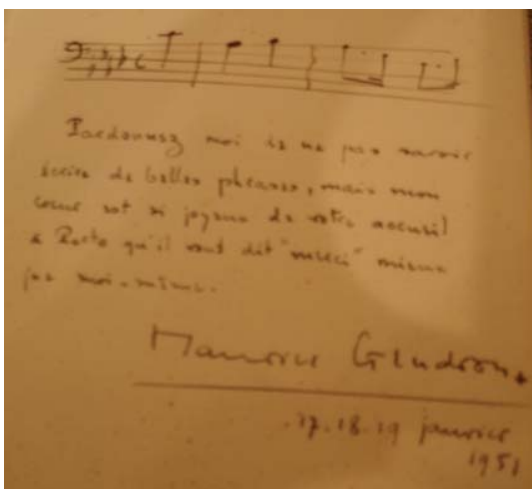 Pardonnez moi de ne pas savoir
écrire de belles phrases, mais mon
coeur est si joyeux de votre accueil
à Porto qu'il vous dit "merci" mieux
que moi-même.
Maurice Gendron
17.18.19 janvier
1951